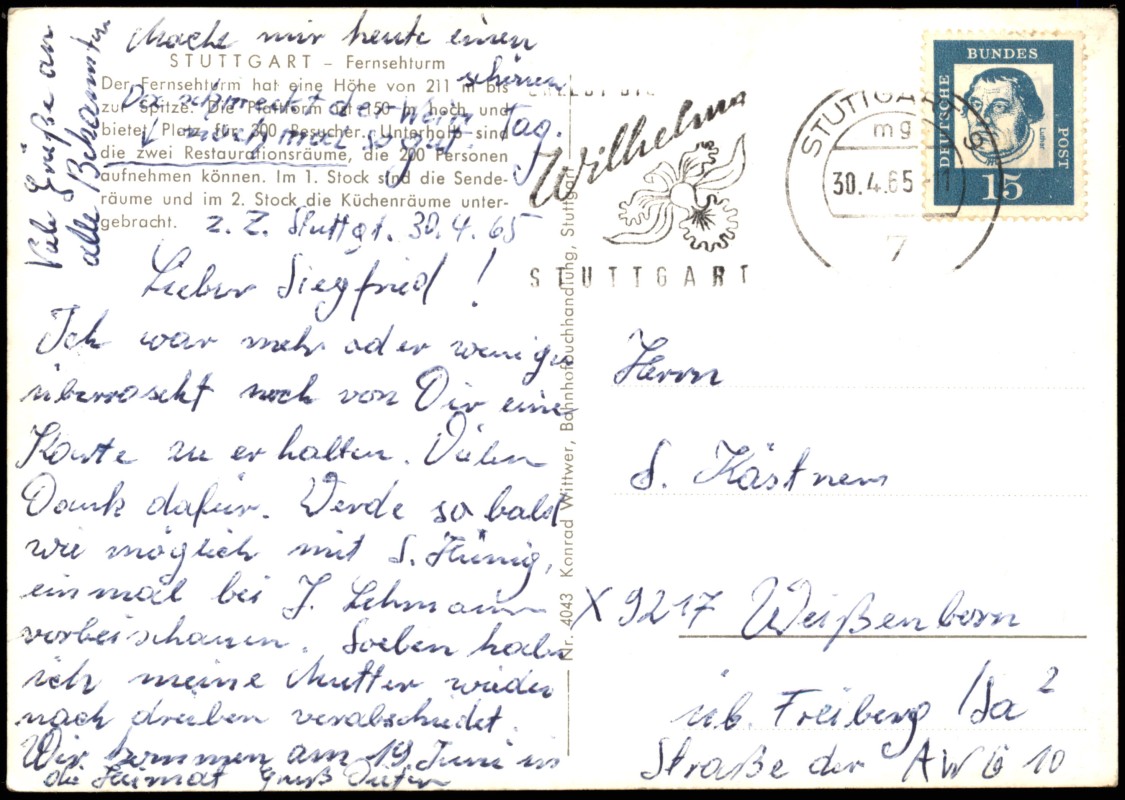 Mache mir heute einen
schönen
Tag.
STUTTGART – Fernsehturm
Der Fernsehturm hat eine Höhe von 211 m bis
zur Spitze. Die Plattform ist 150 m hoch und
bietet Platz für 300 Besucher. Unterhalb sind
die zwei Restaurationsräume, die 200 Personen
aufnehmen können. Im 1. Stock sind die Sende-
räume und im 2. Stock die Küchenräume unter-
gebracht.
Da schmeckt der Wein
nochmal so gut.
Viele Grüße an
alle Bekannten
z. Z. Stuttgt. 30.4.65
Lieber Siegfried!
Ich war mehr oder weniger
überrascht noch von Dir eine
Karte zu erhalten. Vielen
Dank dafür. Werde so bald
wie möglich mit S. Hünig,
einmal bei J. Lehmann
vorbeischauen. Soeben habe
ich meine Mutter wieder
nach drüben verabschiedet.
Wir kommen am 19. Juni in
die Heimat Gruß
Nr. 4043 Konrad Wittwer, Bahnhofbuchhandlung, Stuttgart
Wilhelma
STUTTGART
STUTTGART
mg
30.4.65
7
DEUTSCHE
BUNDES
POST
Luther
15
Herrn
S. Kästner
X 9217 Weißenborn
üb. Freiberg /Sa 2
Straße der AWG 10